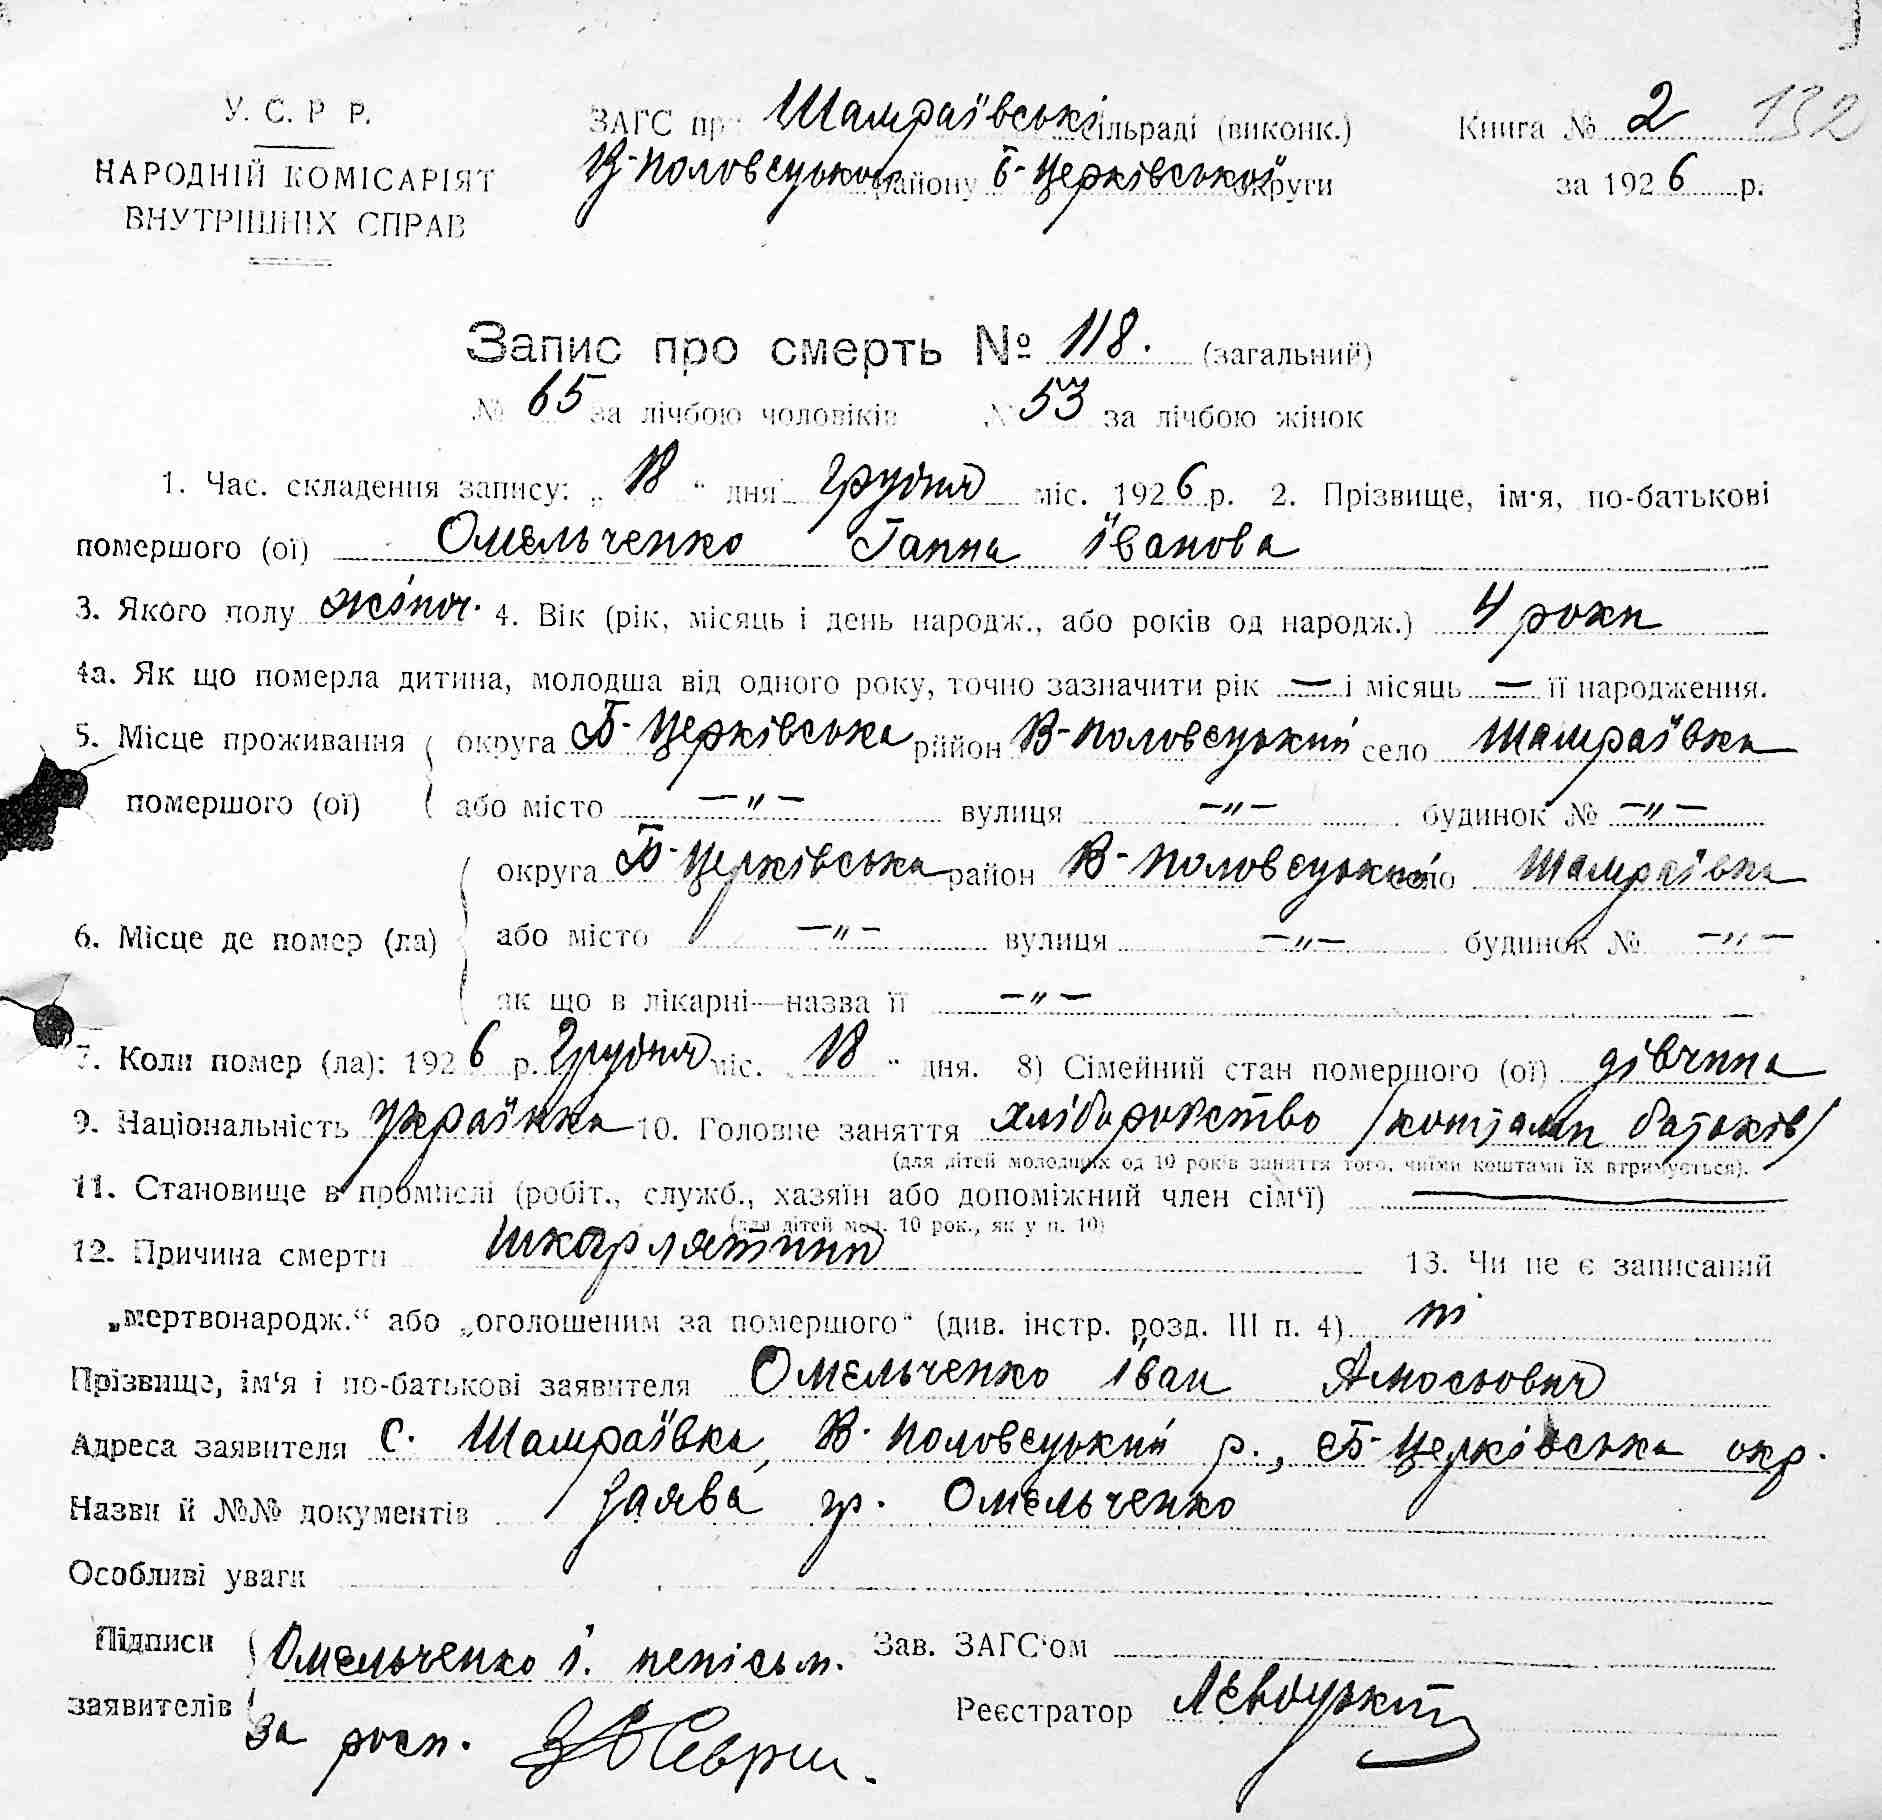 У. С. Р Р.
НАРОДНІЙ КОМІСАРІЯТ
ВНУТРІШНІХ СПРАВ
ЗАГС при Шамраївській сільраді (виконк.)
В-Половецького району Б-Церківської округи
Книга № 2 132
за 1926 р.
Запис про смерть № 118. (загальний)
№ 65 за лічбою чоловіків № 53 за лічбою жінок
1. Час. складення запису: „ 18 “ дня Грудня міс. 1926 р. 2. Прізвище, ім'я, по-батькові
помершого (ої) Омельченко Ганна Іванова
3. Якого полу жіноч. 4. Вік (рік, місяць і день народж., або років од народж.) 4 роки
4а. Як що померла дитина, молодша від одного року, точно зазначити рік — і місяць — її народження.
5. Місце проживання округа Б-Церківська район В-Половецький село Шамраївка
помершого (ої) або місто —„— вулиця —„— будинок № —„—
округа Б-Церківська район В-Половецький село Шамраївка
6. Місце де помер (ла) або місто —„— вулиця —„— будинок № —„—
як що в лікарні—назва її —„—
7. Коли помер (ла): 1926 р. Грудня міс. „ 18 “ дня. 8) Сімейний стан помершого (ої) дівчина
9. Національність українка 10. Головне заняття хліборобство /коштами батьків/
(для дітей молодших од 10 років заняття того, чиїми коштами їх втримується).
11. Становище в промислі (робіт., служб., хазяїн або допоміжний член сім'ї) —
(для дітей мол. 10 рок., як у п. 10)
12. Причина смерти шкарлятина 13. Чи не є записаний
„мертвонародж.“ або „оголошеним за помершого“ (див. інстр. розд. III п. 4) ні
Прізвище, ім'я і по-батькові заявителя Омельченко Іван Амосьович
Адреса заявителя с. Шамраївка, В-Половецький р., Б-Церківська окр.
Назви й №№ документів Заява гр. Омельченко
Особливі уваги
Підписи Омельченко І. непісьм. Зав. ЗАГС'ом
заявителів за росп. Реєстратор